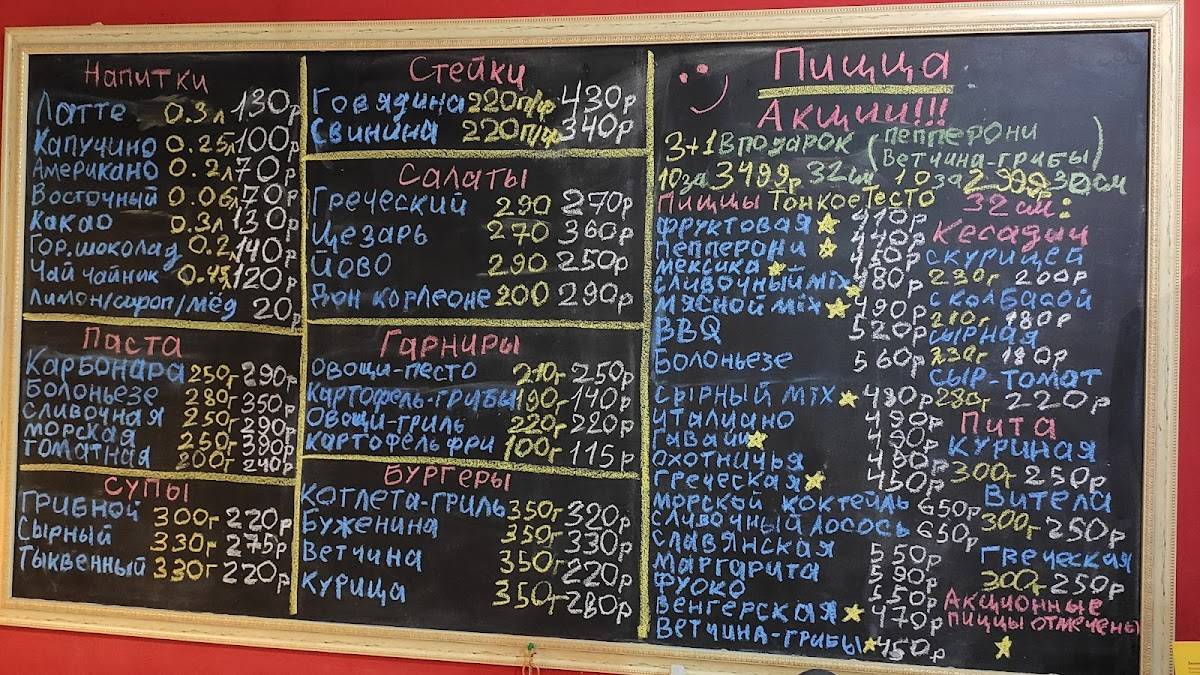 Напитки
Латте 0.3л 130р
Капучино 0.25л 100р
Американо 0.2л 70р
Восточный 0.06л 70р
Какао 0.3л 130р
Гор.шоколад 0.2л 140р
Чай чайник 0.4л 120р
Лимон/сироп/мёд 20р
Паста
Карбонара 250г 290р
Болоньезе 280г 350р
Сливочная 250г 290р
Морская 250г 390р
Томатная 200г 240р
Супы
Грибной 300г 220р
Сырный 330г 275р
Тыквенный 330г 220р
Стейки
Говядина 220п/ф 430р
Свинина 220п/ф 340р
Салаты
Греческий 290 270р
Цезарь 270 360р
Йово 290 250р
Дон Корлеоне 200 290р
Гарниры
Овощи-песто 210г 250р
Картофель-грибы 190г 140р
Овощи-гриль 220г 220р
Картофель фри 100г 115р
Бургеры
Котлета-гриль 350г 320р
Буженина 350г 330р
Ветчина 350г 220р
Курица 350г 280р
Пицца
Акции!!!
3+1 в подарок (пепперони
ветчина-грибы)
10 за 3499р 32см 10 за 2999р 30см
Пиццы Тонкое Тесто 32см:
Фруктовая 410р
Пепперони 440р
Мексика 450р
Сливочный mix 480р
Мясной mix 490р
BBQ 520р
Болоньезе 560р
Сырный mix 480р
Итальяно 490р
Гавайи 490р
Охотничья 480р
Греческая 450р
Морской коктейль 650р
Сливочный лосось 650р
Славянская 550р
Маргарита 590р
Фуоко 550р
Венгерская 470р
Ветчина-грибы 450р
Кесадии
С курицей
230г 200р
С колбасой
210г 180р
Сырная
230г 180р
Сыр-томат
280г 220р
Пита
Куриная
300г 250р
Вителла
300г 250р
Греческая
300г 250р
Акционные
пиццы отмечены